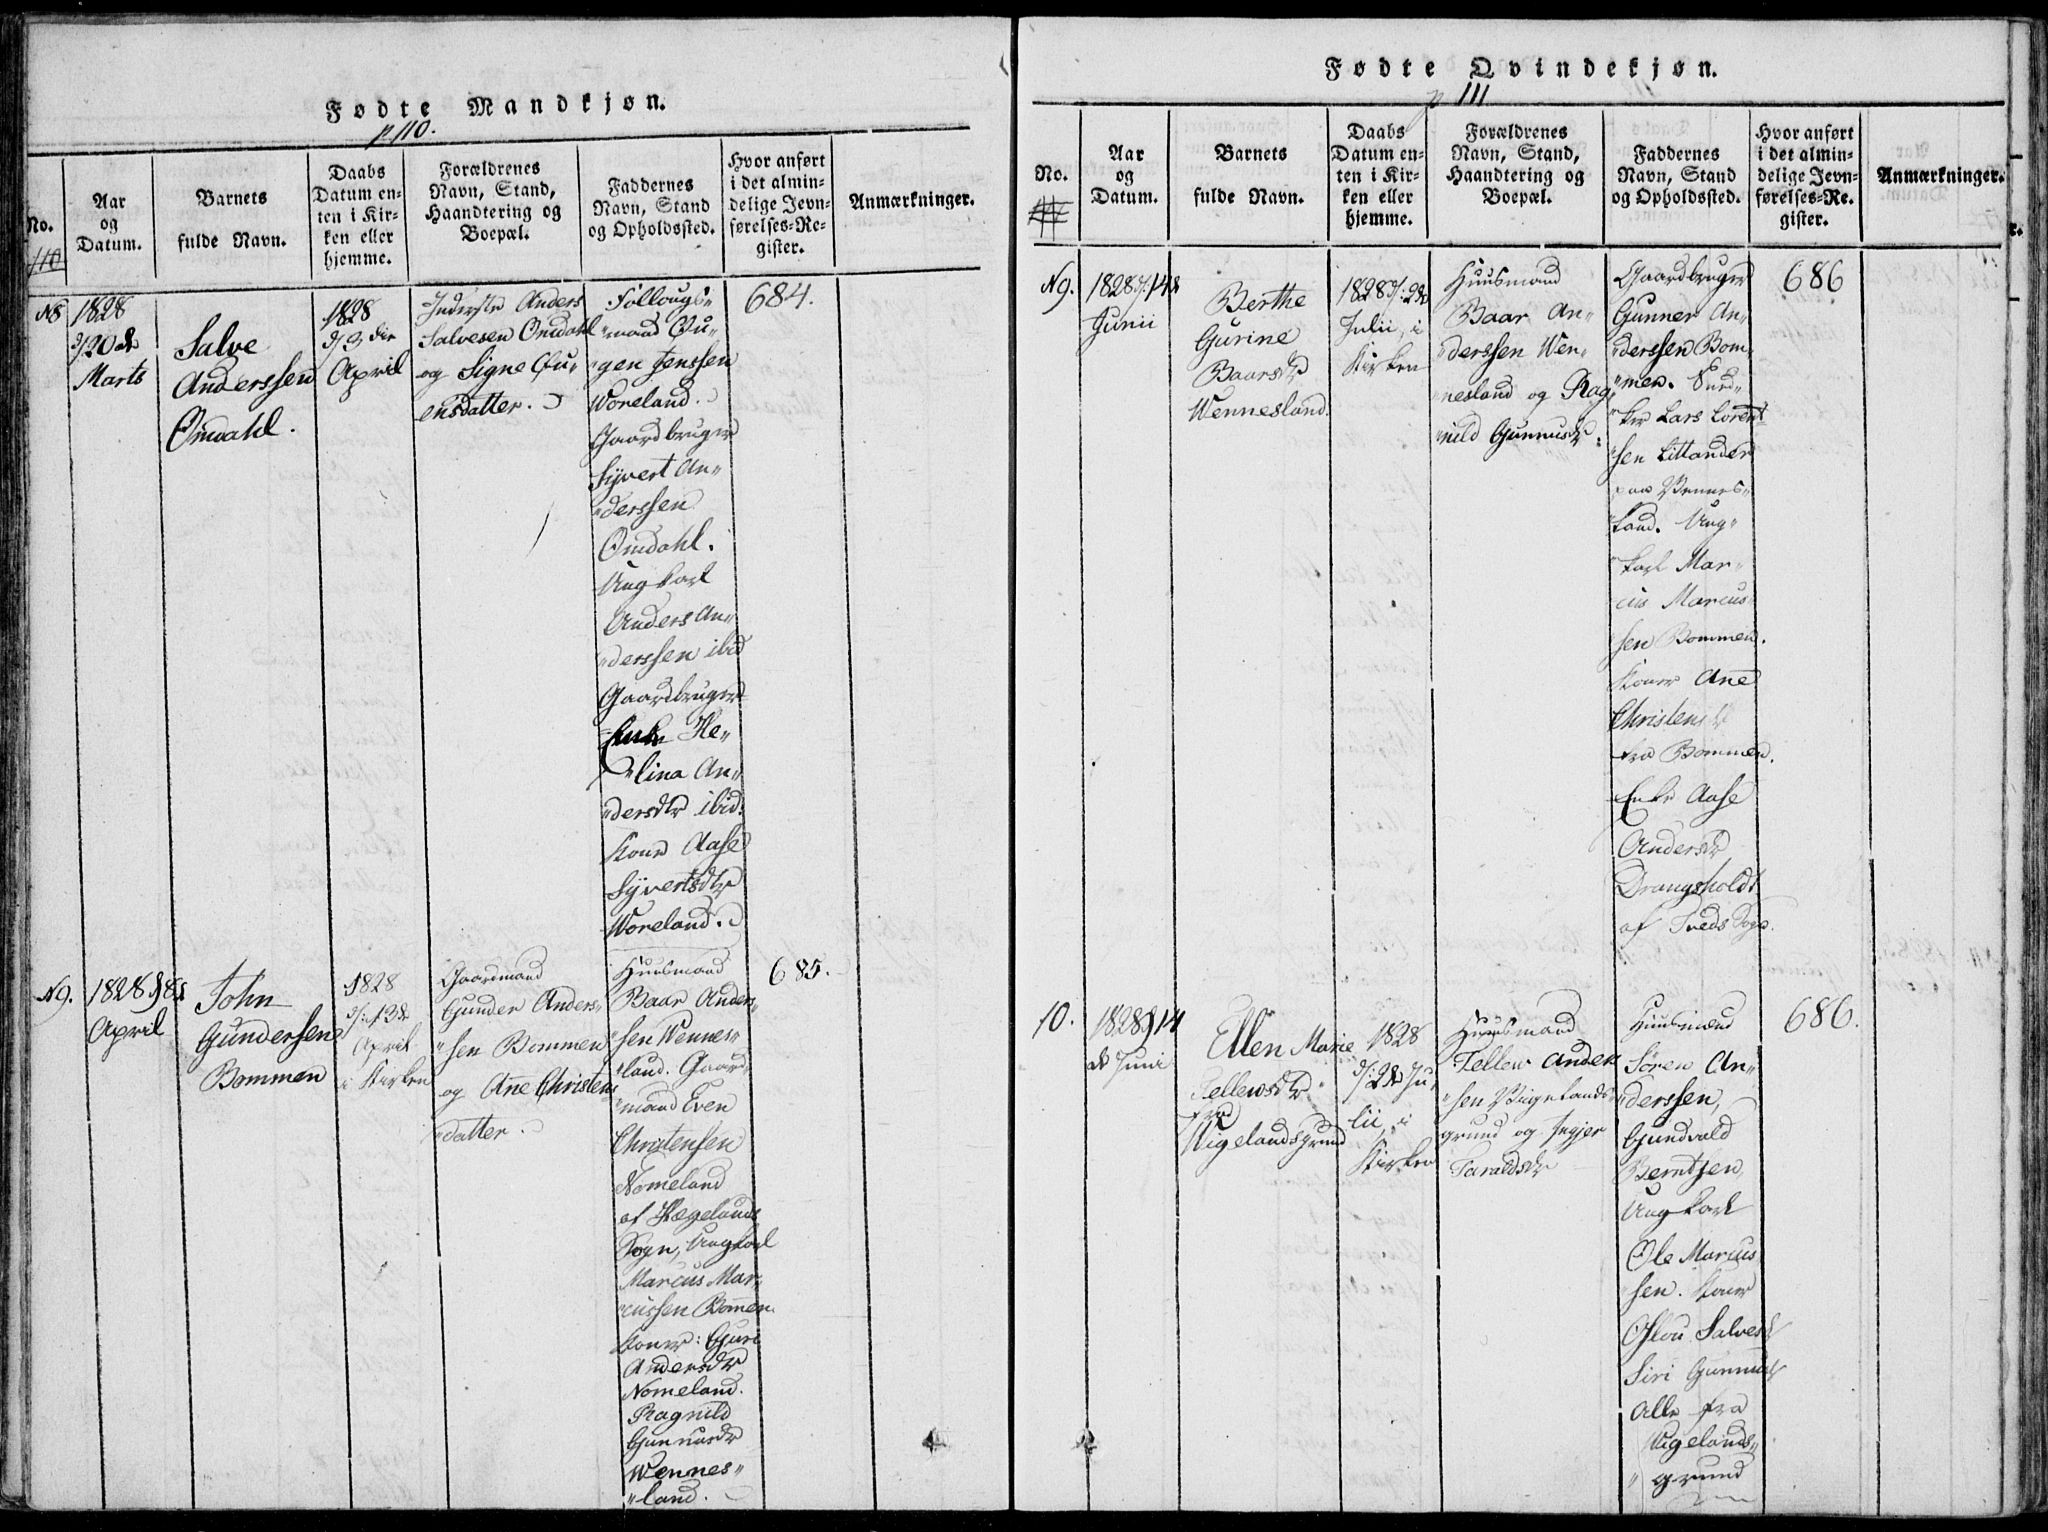 Fødte Mandkjøn.
p 110.
No.
110
Aar
og
Datum.
Barnets
fulde Navn.
Daabs
Datum en-
ten i Kir-
ken eller
hjemme.
Forældrenes
Navn, Stand,
Haandtering og
Boepæl.
Faddernes
Navn, Stand
og Opholdssted.
Hvor anført
i det almin-
delige Jevn-
førelses-Re-
gister.
Anmærkninger.
N8
1828
20de
Marts
Salve
Anderssen
Omdahl.
1828
April
Inderste Anders
Salvesen Omdahl
og Signe Ou-
ensdatter.
Follougs-
mand Ou-
gen Jenssen
Woreland.
Gaardbruger
Syvert An-
derssen
Omdahl.
Ungkarl
Anders An-
derssen ibid
Gaardbruger
Enke He-
lina An-
dersdtr ibid:
Kone Aase
Syvertsdtr
Woreland.
684.
N9.
1828 8de
April
John
Gundersen
Bommen
1828
13de
April
i Kirken
Gaardmand
Gunder Anders-
sen Bommen
og Ane Christens
datter.
Huusmand
Baar Anders-
sen Wennes-
land. Gaard-
mand Even
Christensen
Nomeland
af Hægelands
Sogn, Ungkarl
Marcus Mar-
cussen Bomen.
Koner: Guri
Andersdtr
Nomeland.
Ragnild
Gunnusdtr
Wennes-
land.
685.
Fødte Qvindekjøn.
p 111
No.
Aar
og
Datum.
Barnets
fulde Navn.
Daabs
Datum en-
ten i Kir-
ken eller
hjemme.
Forældrenes
Navn, Stand,
Haandtering og
Boepæl.
Faddernes
Navn, Stand
og Opholdssted.
Hvor anført
i det almin-
delige Jevn-
førelses-Re-
gister.
Anmærkninger.
N9.
1828 14de
Junii
Berthe
Gurine
Baarsdtr
Wennesland.
1828 2de
Julii, i
Kirken
Huusmand
Baar An-
derssen Wen-
nesland og Rag-
nild Gunnusdtr.
Gaardbruger
Gunner An-
derssen Bom-
men.
Lars Lorent
sen Littander
paa Vennes-
land. Ung-
karl Mar-
cus Marcus
sen Bommen.
Koner Ane
Christensdtr
fra Bommen.
Enke Aase
Andersdtr
Drangsholdt
af Tveds Sogn.
686
10.
1828 14
de Juni
Ellen Marie
Tellewsdtr
fra
Wigelandsgrund
1828
2de Ju-
lii, i
Kirken
Huusmand
Tellew Anders
sen Vigelands-
grund og Ingjer
Taraldsdtr
Huusmænd
Søren An-
derssen,
Gundvald
Berntzen,
Ungkarl
Ole Marcus
sen. Koner
Oslou Salvesd
Siri Gunnusd
Alle fra
Wigelands-
grund
686.